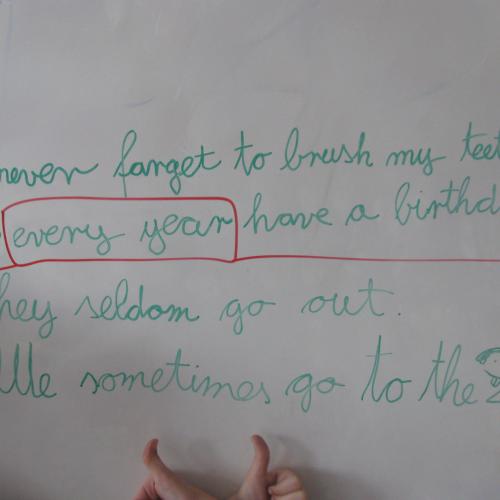 never farget to brush my teet
every year have a birthd
hey seldom go out.
We sometimes go to the